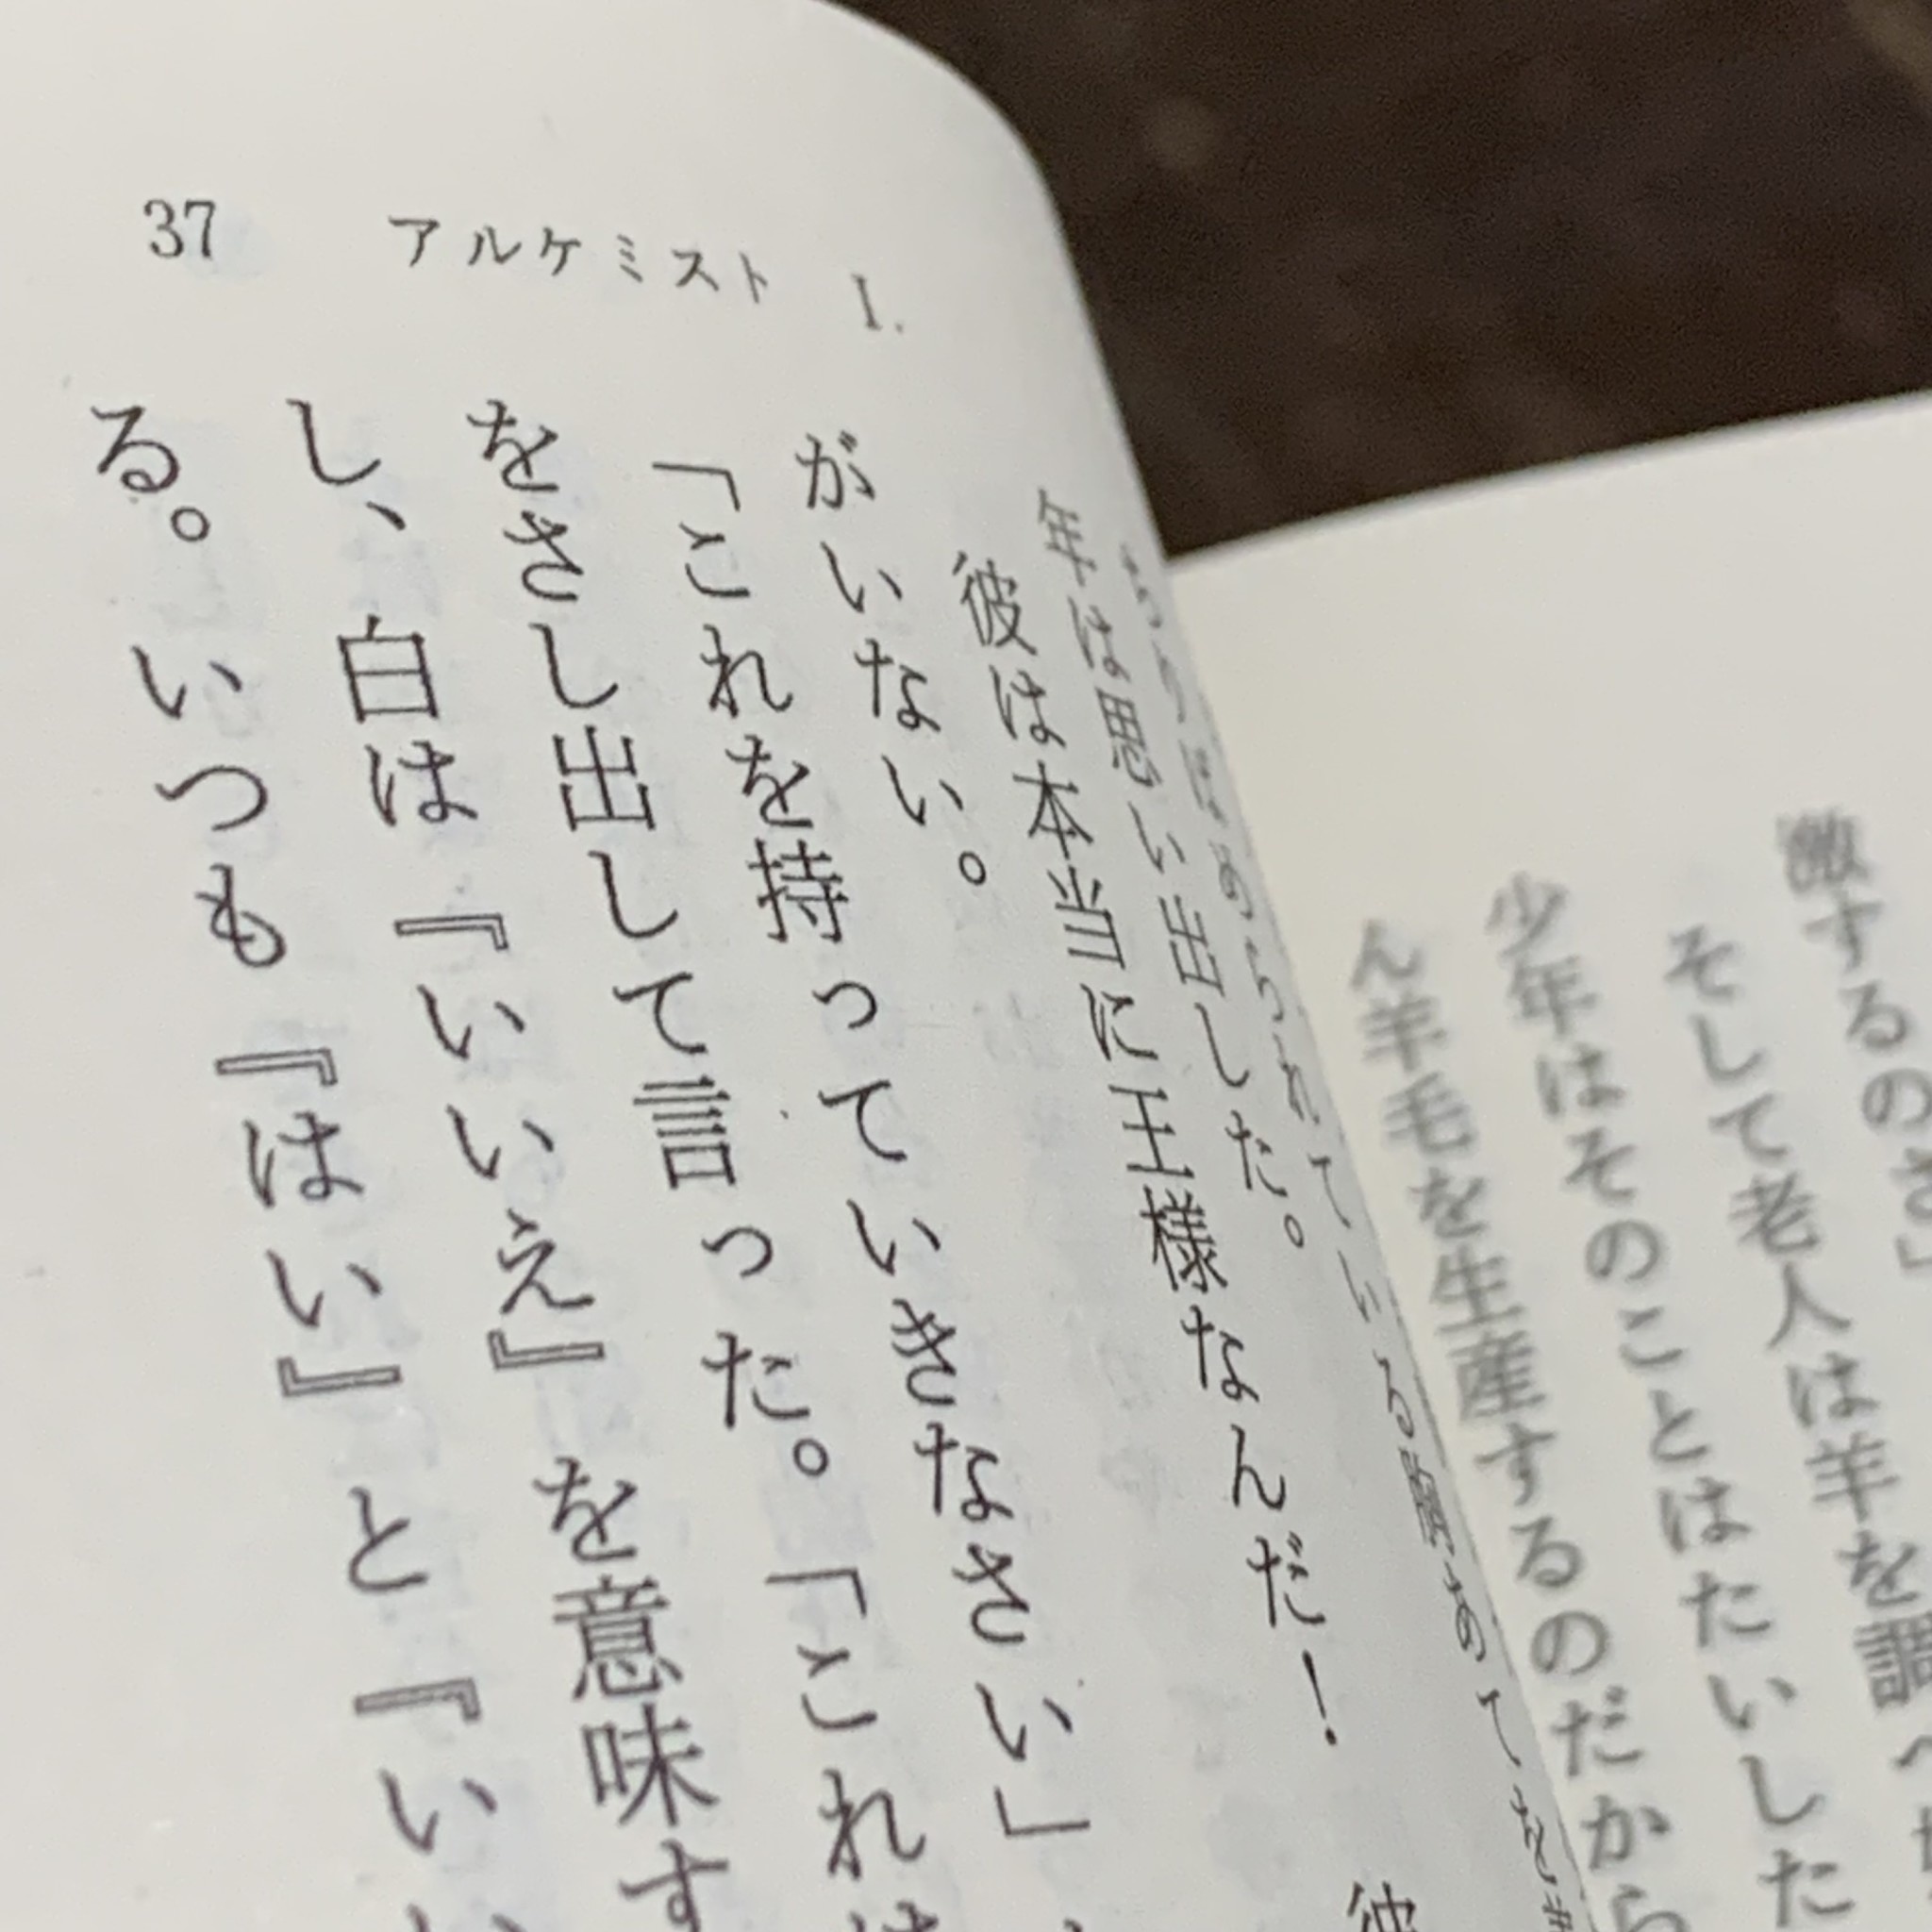 37 アルケミスト I.
激するのさ」
そして老人は羊を調べ
少年はそのことはたいした
ん羊毛を生産するのだから
年は思い出した。
彼は本当に王様なんだ！ 彼
がいない。
「これを持っていきなさい」
をさし出して言った。「これは
し、白は『いいえ』を意味す
る。いつも『はい』と『い